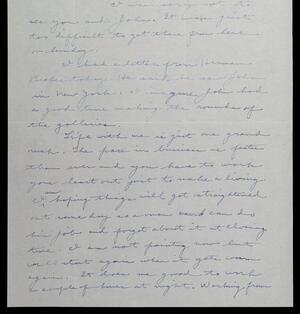 I was sorry not to
see you and John. It was just
too difficult to get there from here
on Sunday.
I had a letter from Herman
today. He said he saw John
in New York. I imagine John had
a good time making the rounds of
the galleries.
Life with me is just one grand
rush. The pace in business is faster
than ever and you have to work
your heart out just to make a living.
I'm hoping things will get straightened
out some day so a man can do
his job and forget about it at closing
time. I am not painting now but
will start again when it gets warm
again. It does me good to work
a couple of hours at night. Working from